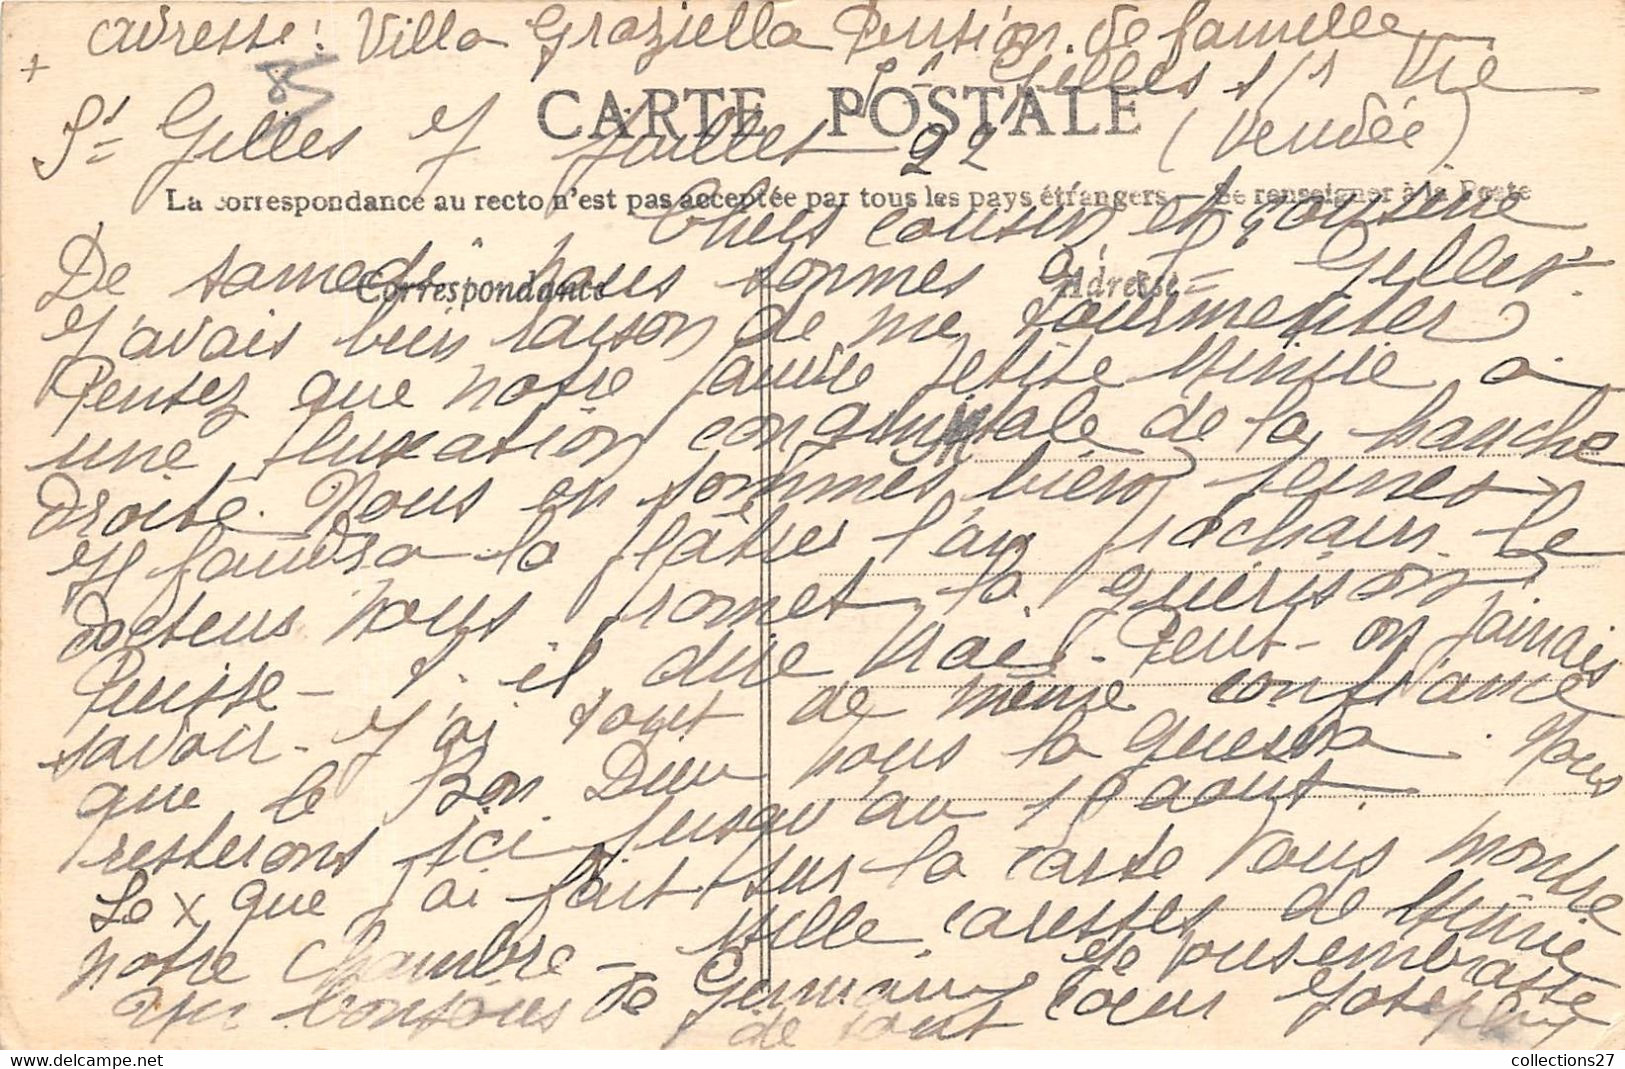 adresse : Villa Graziella Pension de famille
St Gilles s/s Vie
CARTE POSTALE
St Gilles 7 Juillet 22 (Vendée)
La correspondance au recto n'est pas acceptée par tous les pays étrangers — Se renseigner à la Poste
Chers cousin et cousine
De samedi nous sommes à St Gilles.
Correspondance Adresse
J'avais bien raison de me tourmenter
Pensez que notre pauvre petite Minie a
une luxation congénitale de la hanche
droite. Nous en sommes bien peinés
Il faudra la plâtrer l'an prochain. Le
docteur nous promet la guérison
Puisse-t-il dire vrai. Peut-on jamais
savoir. J'ai tout de même confiance
que le Bon Dieu nous la guérira. Nous
resterons ici jusqu'au 18 aout.
Le x que j'ai fait sur la carte vous montre
notre chambre - Mille caresses de Minie
Un bonjour de Germain Je vous embrasse
de tout coeur Joseph
collections27